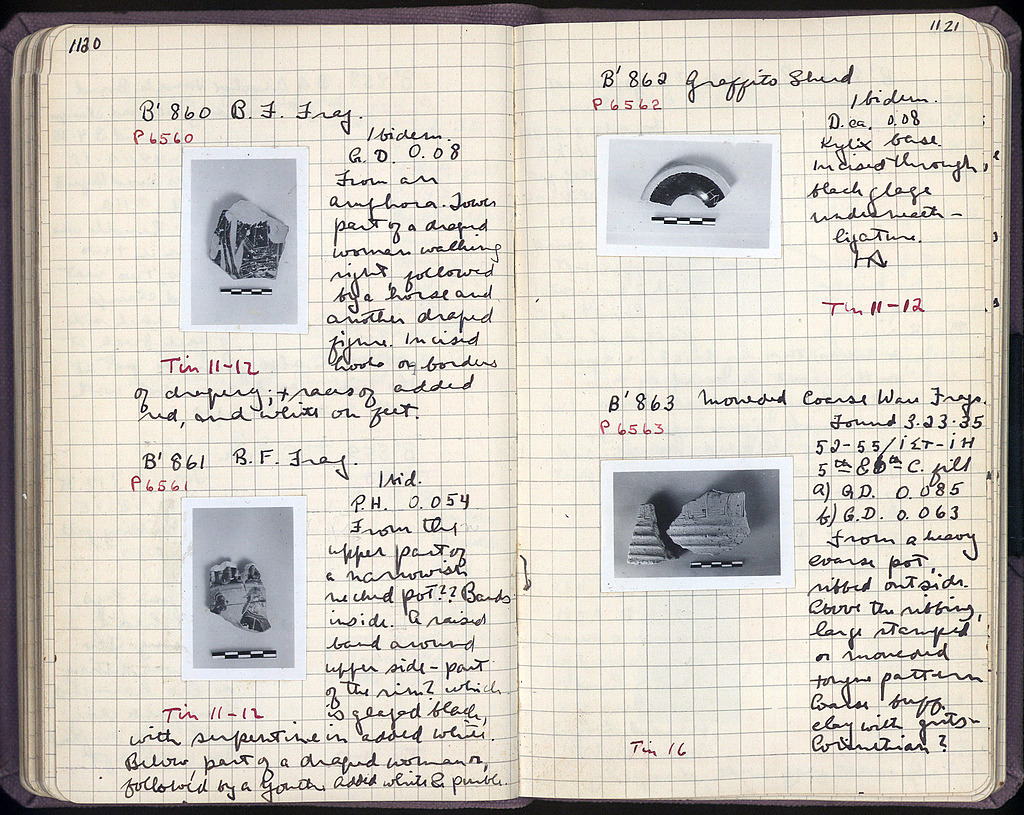 1120
B' 860 B. F. Frag.
P 6560
Ibidem.
G. D. 0.08
From an
amphora. Lower
part of a draped
woman walking
right followed
by a horse and
another draped
figure. Incised
hooks on borders
Tin 11-12
of drapery; traces of added
red, and white on feet.
B' 861 B. F. Frag.
P 6561
Ibid.
P.H. 0.054
From the
upper part of
a narrowish
necked pot?? Bands
inside. A raised
band around
upper side - part
of the rim? which
is glazed black,
Tin 11-12
with serpentine in added white.
Below part of a draped woman r,
followed by a youth. Added white & purple.
1121
B' 862 Graffito Sherd
P 6562
Ibidem.
D. ca. 0.08
Kylix base.
Incised through
black glaze
underneath -
ligature.
Tin 11-12
B' 863 Moulded Coarse Ware Frags.
P 6563
Found 3-23-35
52-55/ΙΣΤ-ΙΗ
5th & 6th C. fill
a) G.D. 0.085
b) G.D. 0.063
From a heavy
coarse pot,
ribbed outside.
Above the ribbing,
large stamped
or moulded
tongue pattern
Coarse buff
clay with grits -
Corinthian?
Tin 16